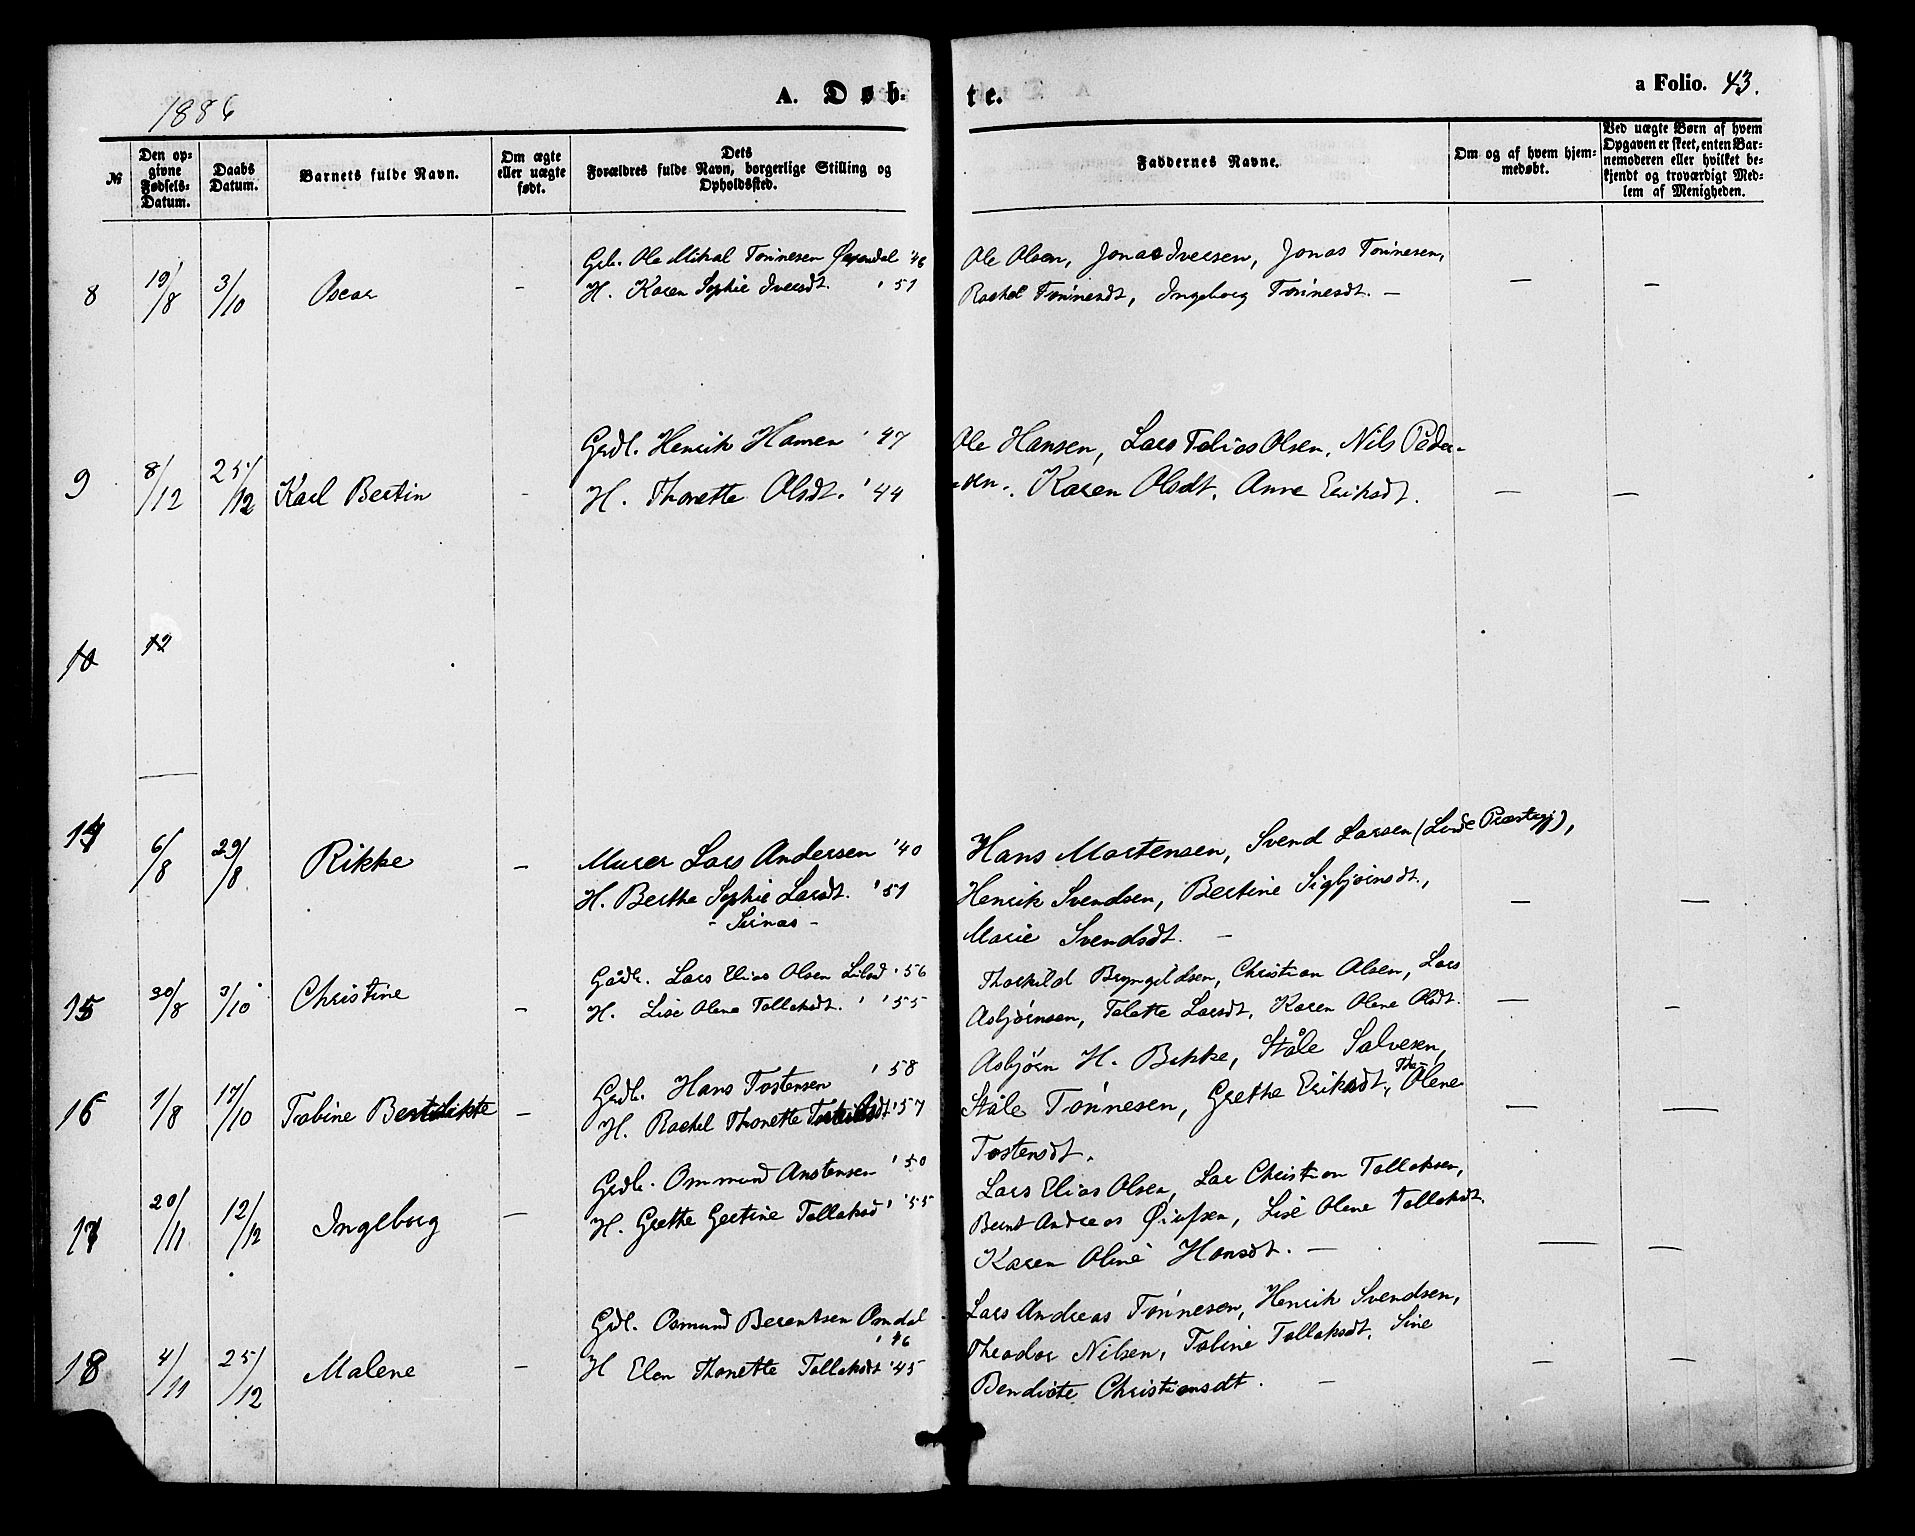 1886 A. Døb- te. a Folio. 43.
№
Den op-
givne
Fødsels-
Datum.
Daabs
Datum.
Barnets fulde Navn.
Om ægte
eller uægte
født.
Dets
Forældres fulde Navn, borgerlige Stilling og
Opholdssted.
Faddernes Navne.
Om og af hvem hjem-
medøbt.
Ved uægte Børn af hvem
Opgaven er skeet, enten Bar-
nemoderen eller hvilket be-
kjendt og troværdigt Med-
lem af Menigheden.
Ole Mikal Tønnesen '46 Ole Olsen, Jonas Iversen, Jonas Tønnesen,
8 19/8 3/10 Oscar - H. Karen Sophie Iversdt. '51 Rachel Tønnesdt, Ingeborg Tønnesdt. - - -
Grdl. Henrik Hansen '47 Ole Hansen, Lars Tobias Olsen, Nils Peder-
9 8/12 25/12 Karl Bertin - H. Thonette Olsdt. '44 -sen. Karen Olsdt. Anne Eriksdt. - -
10 12
14 6/8 29/8 Rikke - Murer Lars Andersen '40 Hans Mortensen, Svend Larsen (Lunde Præstegj),
H. Berthe Sophie Larsdt. '51 Henrik Svendsen, Bertine Sigbjørnsdt., - -
- Sirnas - Marie Svendsdt. -
15 30/8 3/10 Christine - Gådl. Lars Elias Olsen '56 Thorkild Bryngildsen, Christian Olsen, Lars
H. Lise Olene Tollaksdt. '55 Asbjørnsen, Talette Larsdt, Karen Olene Olsdt. - -
Asbjørn H. Bakke, Ståle Salvesen,
16 1/8 17/10 Tobine - Grdl. Hans Tostensen '58 Ståle Tønnesen, Grethe Eriksdt, Tho- Olene
H. Rachel Thonette '57 Tostensdt. - -
17 20/11 12/12 Ingeborg - Grdl. Ommund Anstensen '50 Lars Elias Olsen, Lar Christian Tollaksen,
H. Grethe Gertine Tollaksd '55 Bernt Andreas, Lise Olene Tollaksdt.
Karen Oline Hansdt. - - -
Grdl. Osmund Berentsen Omdal '46 Lars Andreas Tønnesen, Henrik Svendsen,
18 4/11 25/12 Malene - H Elen Thonette Tollaksdt '45 Theodor Nilsen, Tobine Tollaksdt. Sine
Bendicte Christiansdt. - - -